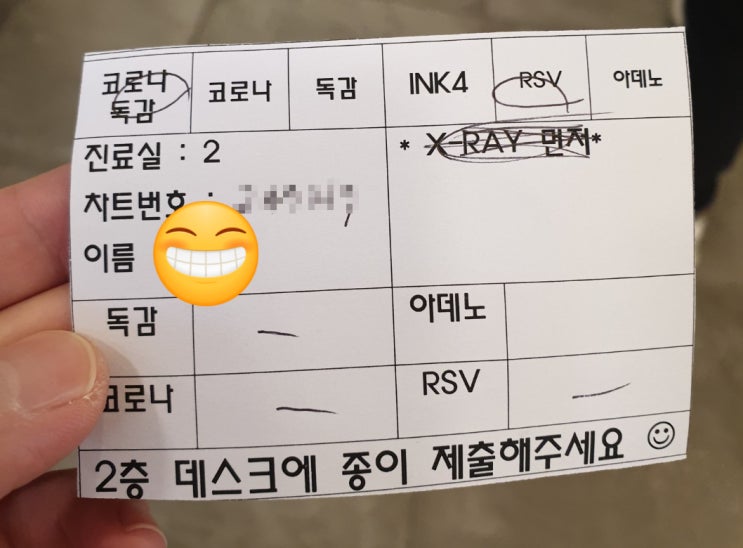 코로나 독감
코로나
독감
INK4
RSV
아데노
진료실 : 2
* X-RAY 먼저*
차트번호 :
이름
독감 -
아데노
코로나 -
RSV -
2층 데스크에 종이 제출해주세요 ☺